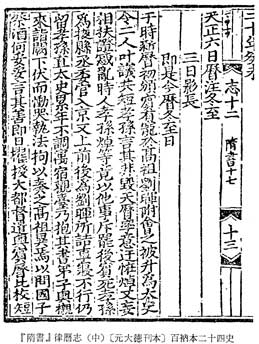 天正六日曆注冬至
三日影長
即是今曆冬至日
志十二
隋書十七
十三
于時新曆初頒賓有寵於高祖劉暉附會之被升為太史
令二人叶議共短孝孫言其非毀天曆率意迂怪焯又妄
相扶證惑亂時人孝孫焯等竟以他事斥罷後賓死孝孫
為掖縣丞委官入京又上前後為劉暉所詰事寢不行仍
留孝孫直太史累年不調寓宿觀臺乃抱其書弟子輿櫬
來詣闕下伏而慟哭執法拘以奏之高祖異焉以問國子
祭酒何妥妥言其善即日擢授大都督遣與賓曆比校短
『隋書』律暦志（中）〔元大徳刊本〕百衲本二十四史